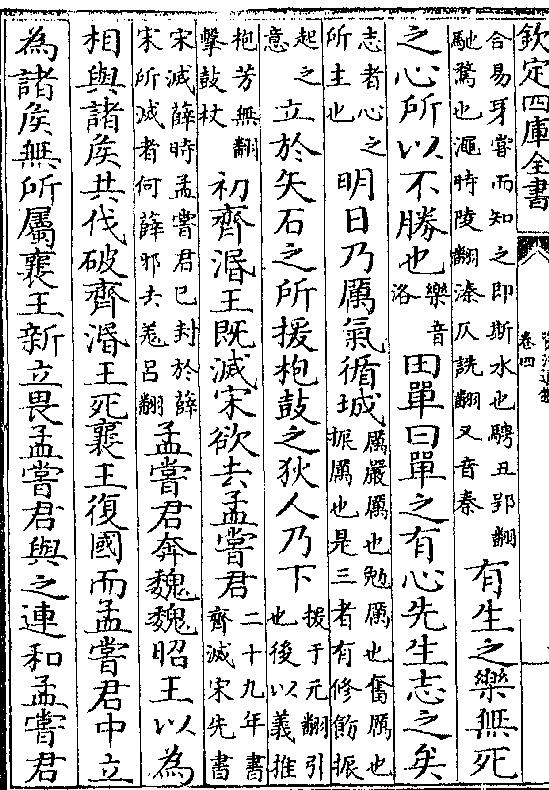 欽定四庫全書
卷四
合易牙嘗而知之即斯水也騁丑郢翻
馳騖也澠時陵翻溱仄詵翻又音秦
有生之樂無死
之心所以不勝也
樂音
洛
田單曰單之有心先生志之矣
志者心之
所主也
明日乃厲氣循城
厲嚴厲也勉厲也奮厲也
振厲也是三者有修飭振
起之
意
立於矢石之所援枹鼓之狄人乃下
援于元翻引
也後以義推
枹芳無翻
擊鼓杖
初齊湣王既滅宋欲去孟嘗君
二十九年書
齊滅宋先書
宋滅薛時孟嘗君已封於薛
宋所滅者何薛邪去羗呂翻
孟嘗君奔魏魏昭王以為
相與諸侯共伐破齊湣王死襄王復國而孟嘗君中立
為諸侯無所屬襄王新立畏孟嘗君與之連和孟嘗君